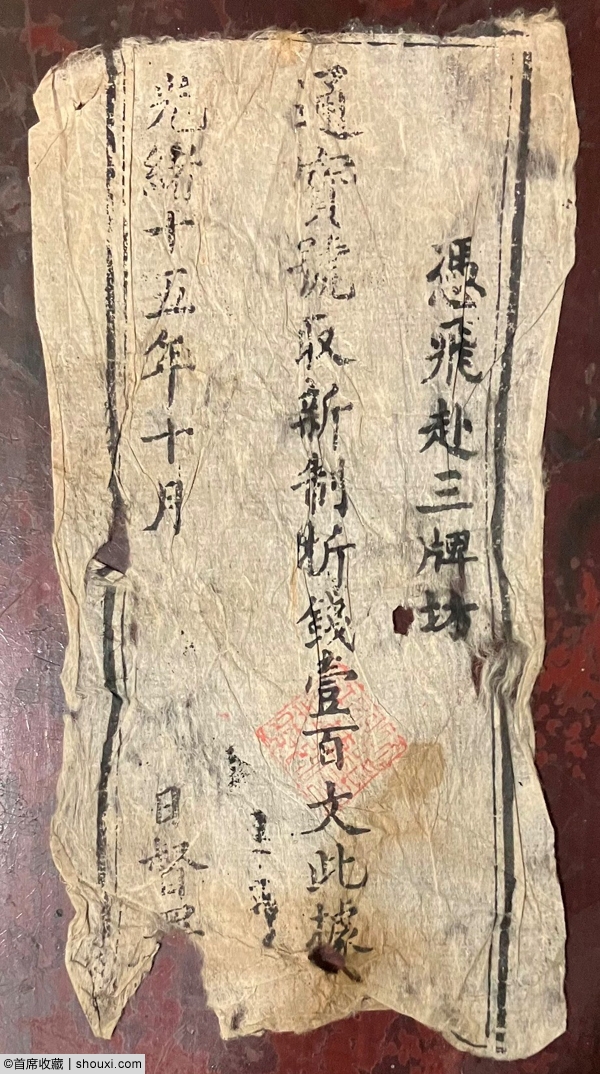 憑飛赴三牌坊
通寶號取新制斨錢壹百文此據
光緒十五年十月
日督
©首席收藏｜shouxi.com